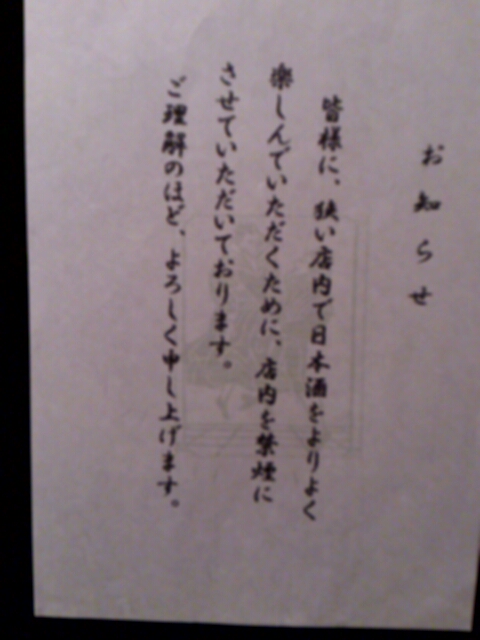 お知らせ
皆様に、狭い店内で日本酒をよりよく
楽しんでいただくために、店内を禁煙に
させていただいております。
ご理解のほど、よろしく申し上げます。